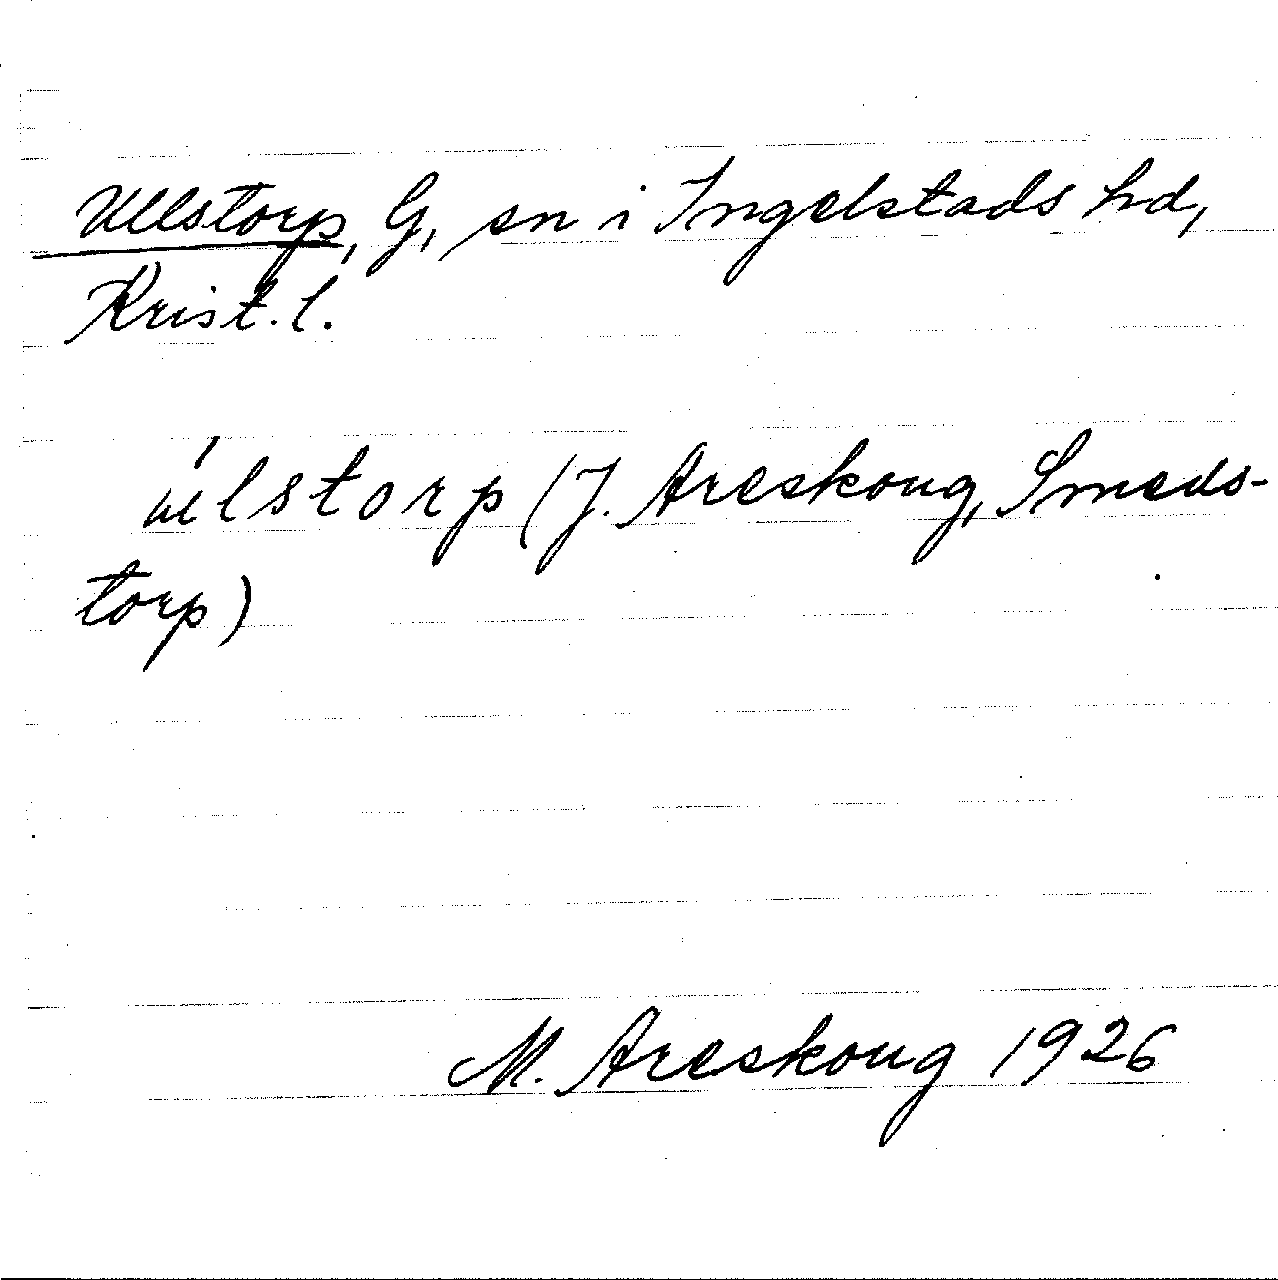 Ullstorp, G, sn i Ingelstads hd,
Krist. l.
úlstorp (J. Areskoug, Smeds-
torp)
M. Areskoug 1926